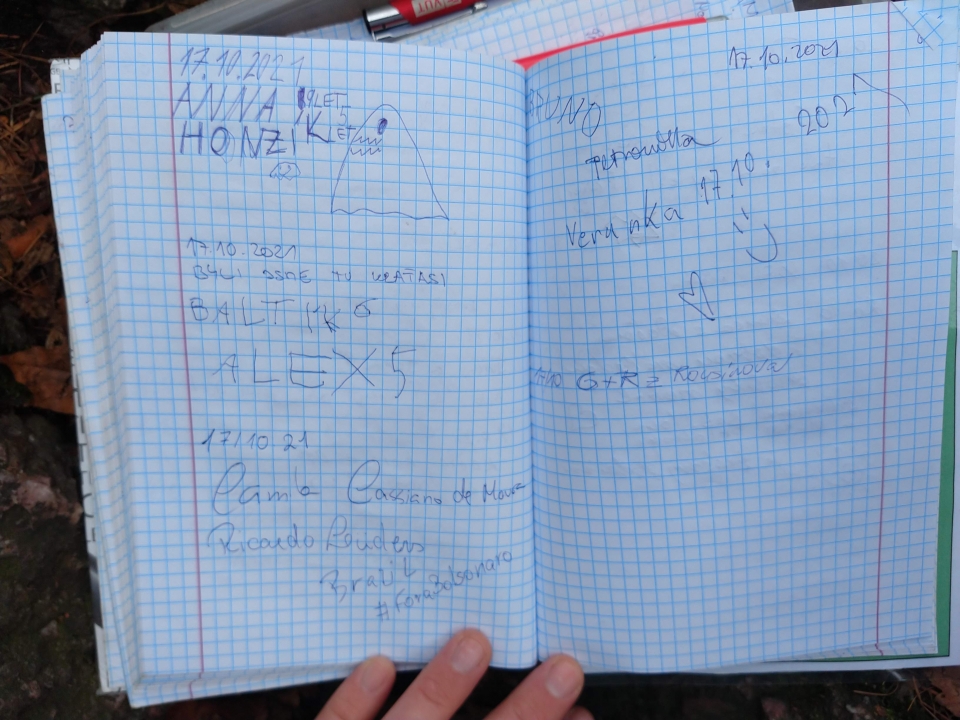 17.10.2021
ANNA 9 LET
HONZÍK 5 LET
17.10.2021
BYLI JSME TU KŘAŤASI
BALTIK 6
ALEX 5
17/10 21
Camila Cassiano de Moura
Ricardo
Brasil
#ForaBolsonaro
17.10.2021
BRUNO
Petronilla
2021
Verunka 17.10.
17.10 G+R =